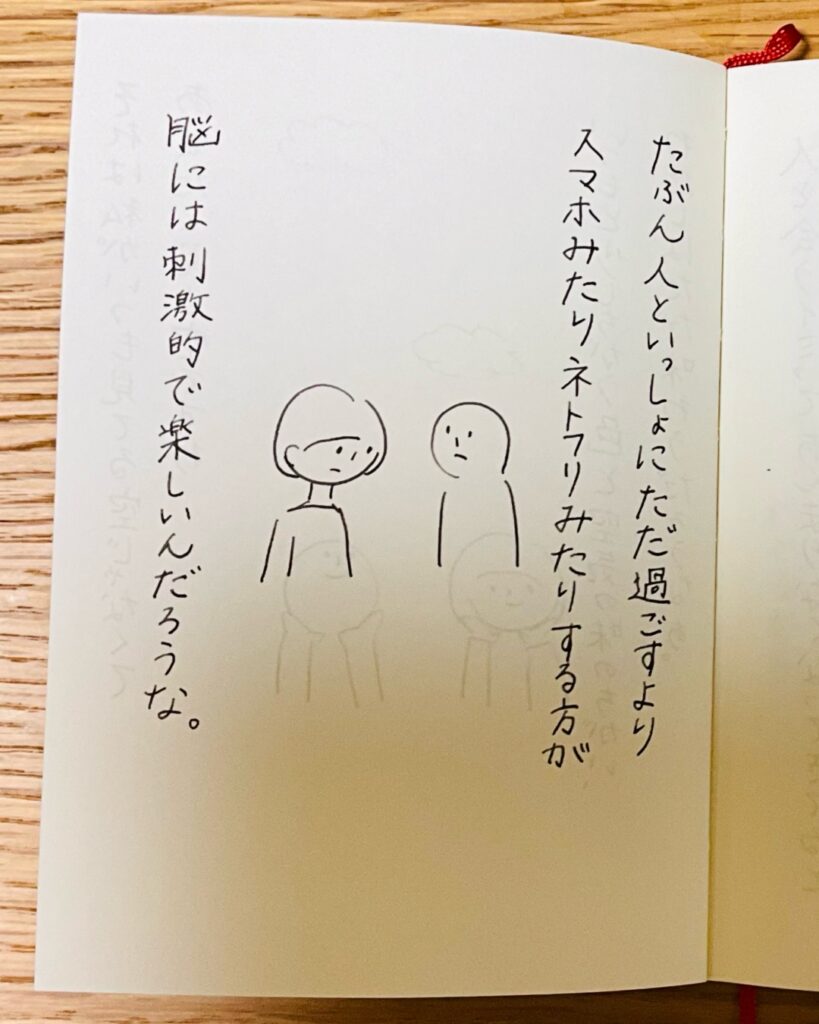 たぶん人といっしょにただ過ごすより
スマホみたりネトフリみたりする方が
脳には刺激的で楽しいんだろうな。